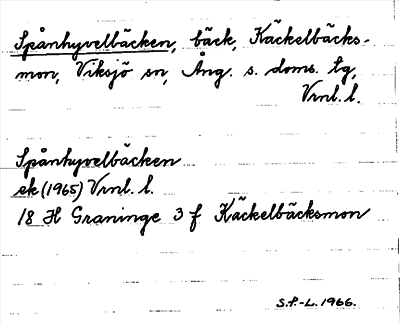 Spånhyvelbäcken, bäck, Käckelbäcks-
mon, Viksjö sn, Ång. s. doms. tg,
Vrnl. l.
Spånhyvelbäcken
ek (1965) Vrnl. l.
18 H Graninge 3 f Käckelbäcksmon
S.P.-L. 1966.